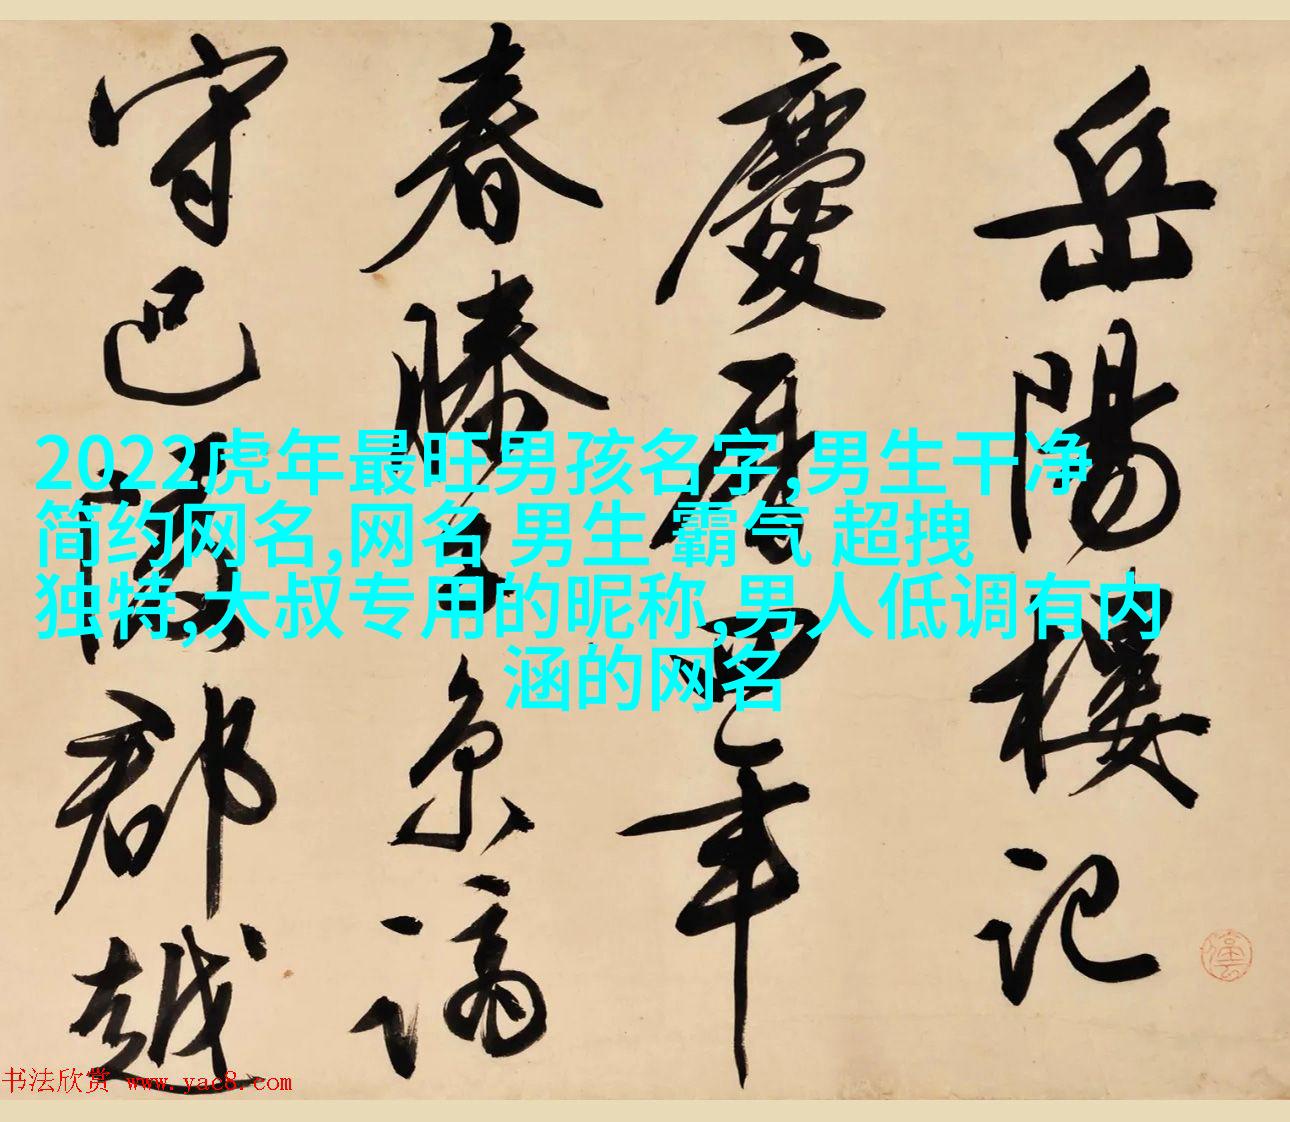 岳陽樓记
慶历四年
春滕子京谪
守巴陵郡越
2022虎年最旺男孩名字,男生干净
简约网名,网名 男生 霸气 超拽
独特,大叔专用的昵称,男人低调有内
涵的网名
书法欣赏 www.yac8.com